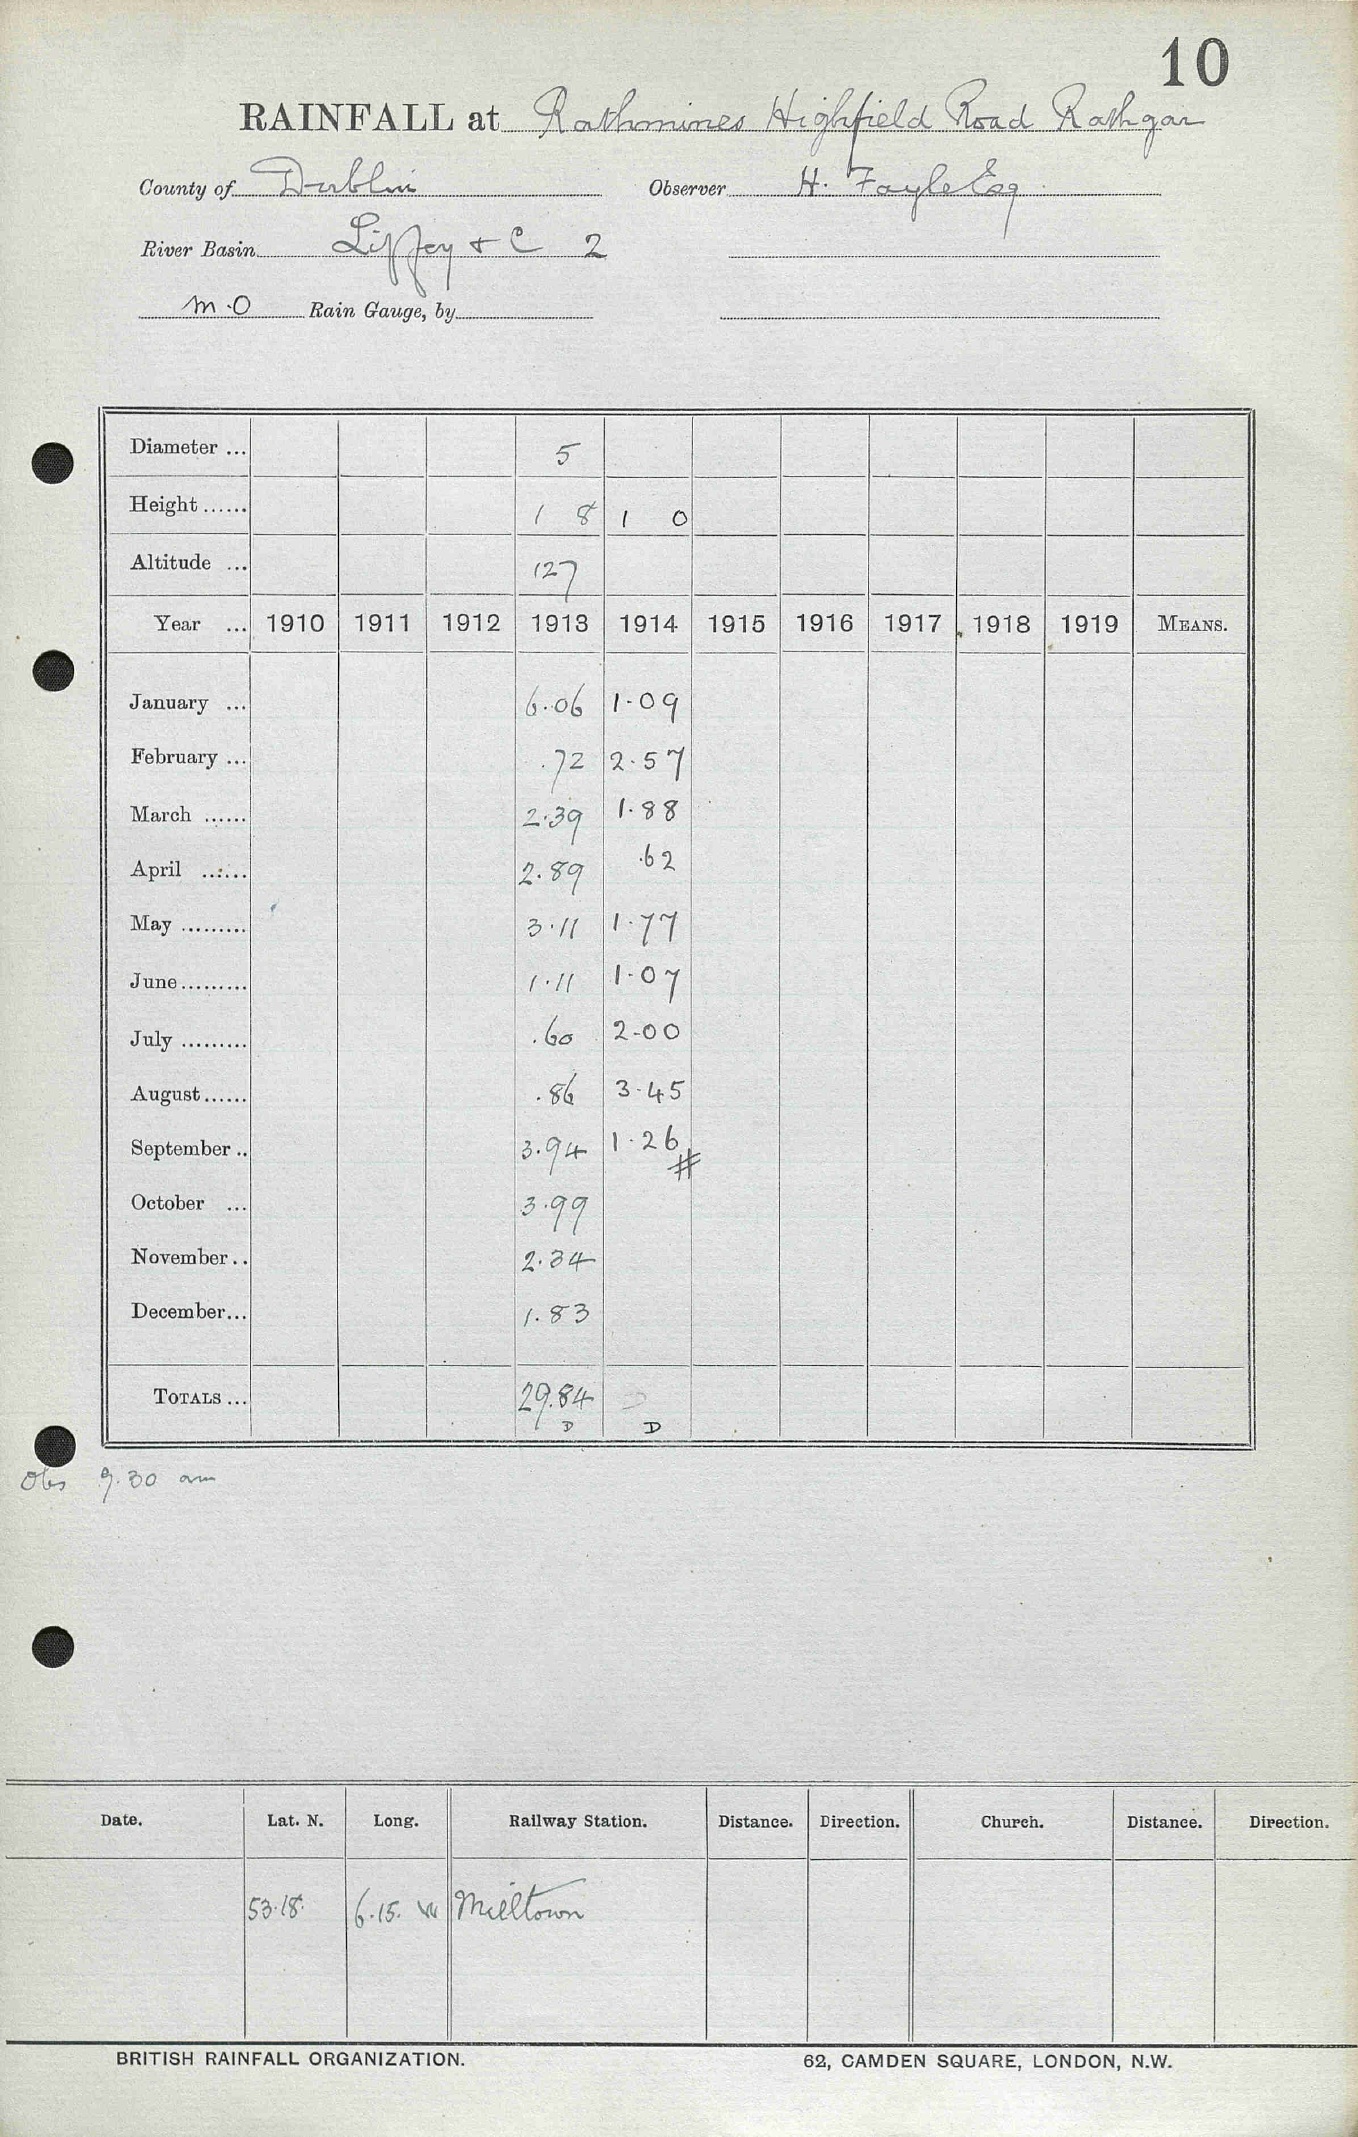 10
RAINFALL at Rathmines Highfield Road Rathgar
County of Dublin Observer H. Fayle Esq
River Basin Liffey & C 2
M.O Rain Gauge, by
Diameter ... 5
Height ...... 1 8 1 0
Altitude ... 127
Year ... 1910 1911 1912 1913 1914 1915 1916 1917 1918 1919 MEANS.
January ... 6.06 1.09
February ... .72 2.57
March ...... 2.39 1.88
April ...... 2.89 .62
May ......... 3.11 1.77
June ......... 1.11 1.07
July ......... .60 2.00
August ...... .86 3.45
September .. 3.94 1.26 #
October ... 3.99
November .. 2.34
December ... 1.83
TOTALS ... 29.84
D D
Obs 9.30 am
Date. Lat. N. Long. Railway Station. Distance. Direction. Church. Distance. Direction.
53.18. 6.15. W Milltown
BRITISH RAINFALL ORGANIZATION. 62, CAMDEN SQUARE, LONDON, N.W.